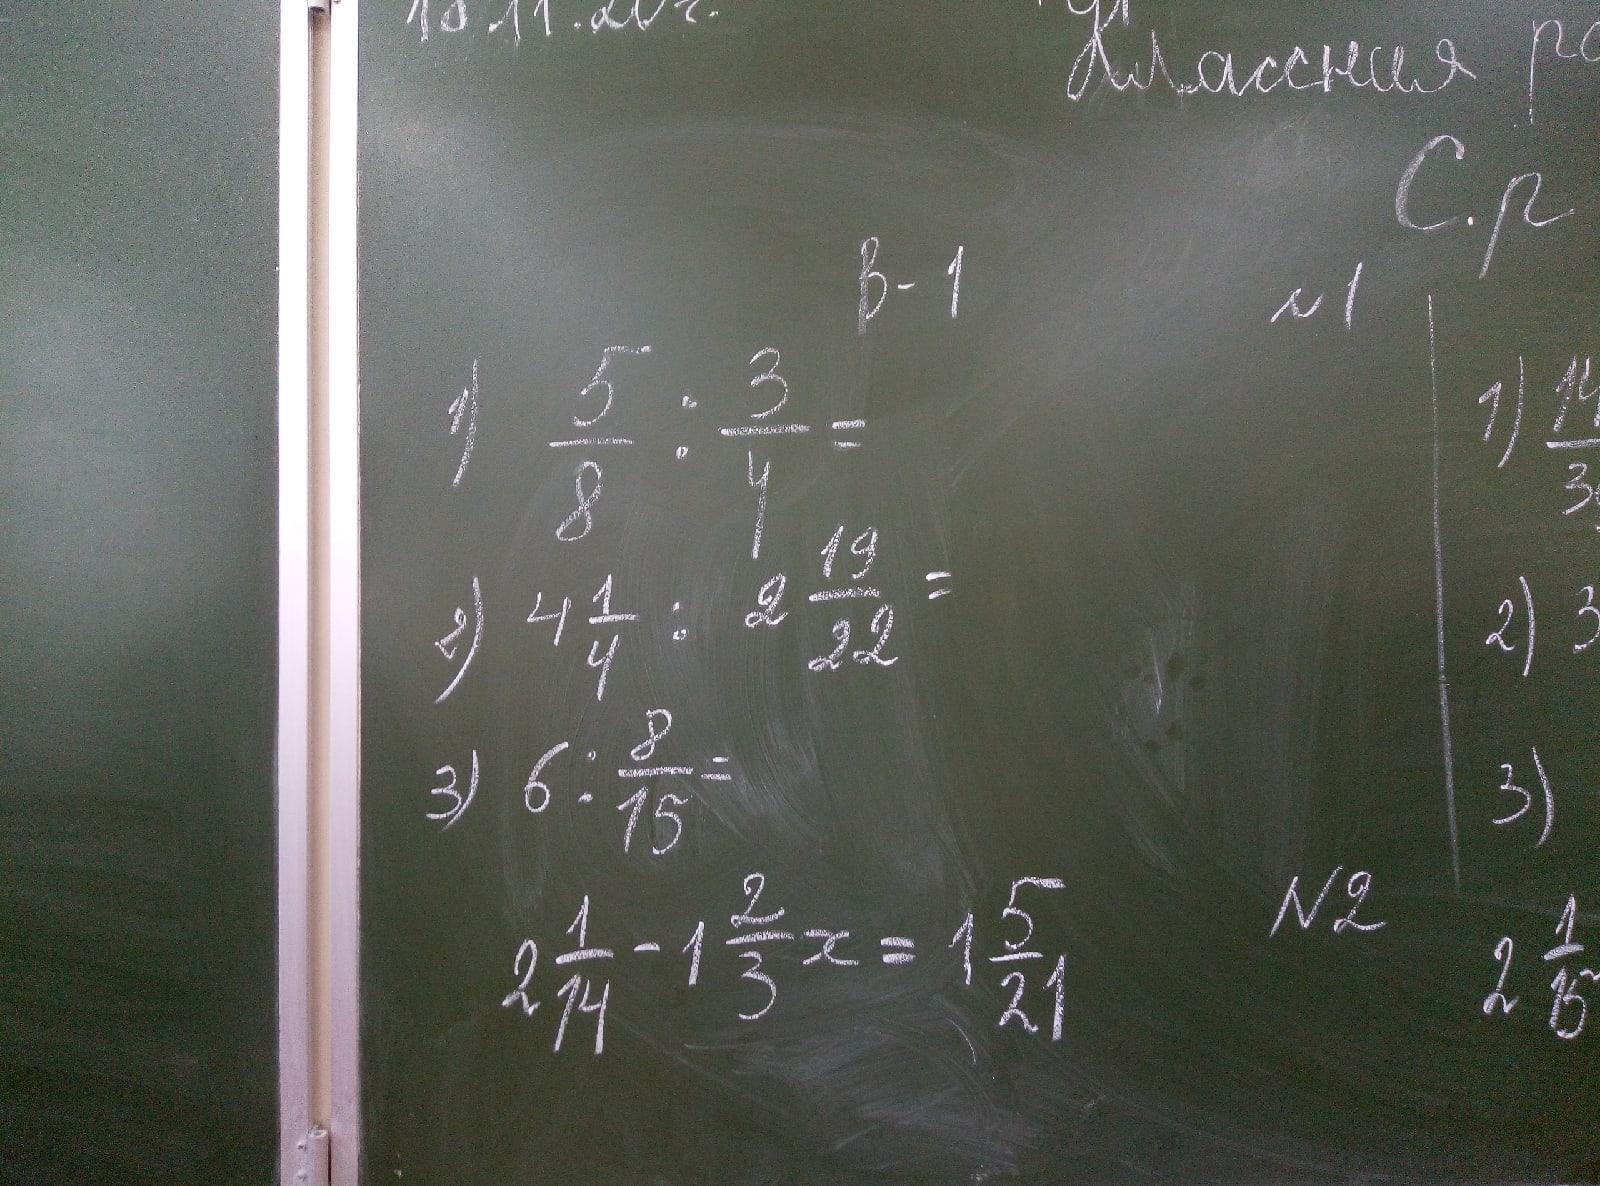 18.11.20г.
Классная
С.р
В-1
№1
1) 5/8 : 3/4 =
2) 4 1/4 : 2 19/22 =
3) 6 : 8/15 =
№2
2 1/14 - 1 2/3 x = 1 5/21
1) 14
2) 3
3)
2 1/15